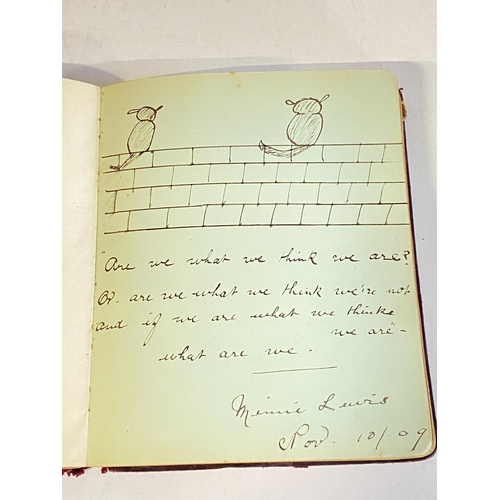 "Are we what we think we are?
Or are we what we think we're not
and if we are what we thinke
we are"-
what are we.
Minnie Lewis
Nov. 10/09